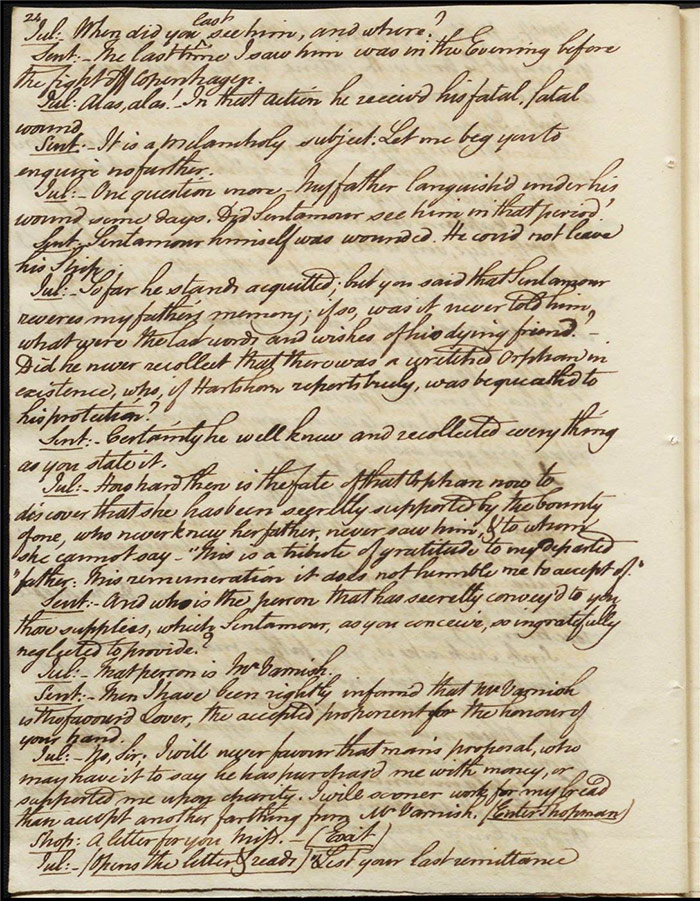 24
Jul:- When did you last see him, and where?
Sent:- The last time I saw him was in the Evening before
the fight off Copenhagen.
Jul: Alas, alas! - In that action he receiv'd his fatal, fatal
wound.
Sent:- It is a melancholy subject. Let me beg you to
enquire no further.
Jul:- One question more - My father languish'd under his
wound some days. Did Sentamour see him in that period?
Sent:- Sentamour himself was wounded. He could not leave
his Ship.
Jul:- So far he stands acquitted; but you said that Sentamour
reveres my father's memory; if so, was it never told him,
what were the last words and wishes of his dying friend? -
Did he never recollect that there was a wretched Orphan in
existence, who, if Hartshorn reports truly, was bequeathed to
his protection?
Sent:- Certainly he well knew and recollected every thing
as you state it.
Jul:- How hard then is the fate of that Orphan now to
discover that she has been secretly supported by the bounty
of one, who never knew her father, never saw him, & to whom
she cannot say - "This is a tribute of gratitude to my departed
"father: This remuneration it does not humble me to accept of."
Sent:- And who is the person that has secretly convey'd to you
those supplies, which Sentamour, as you conceive, so ingratefully
neglected to provide?
Jul:- That person is Mr Varnish.
Sent:- Then I have been rightly informd that Mr Varnish
is the favourd Lover, the accepted proponent for the honour of
your hand.
Jul:- No, Sir. I will never favour that man's proposal, who
may have it to say he has purchasd me with money, or
supported me upon charity. I will sooner work for my bread
than accept another farthing from Mr Varnish. (Enter Shopman)
Shop: A letter for you Miss. - (Exit)
Jul:- (Opens the letter & reads) "Lest your last remittance